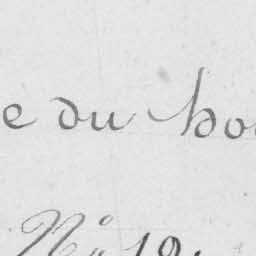 e du bo
N° 19.